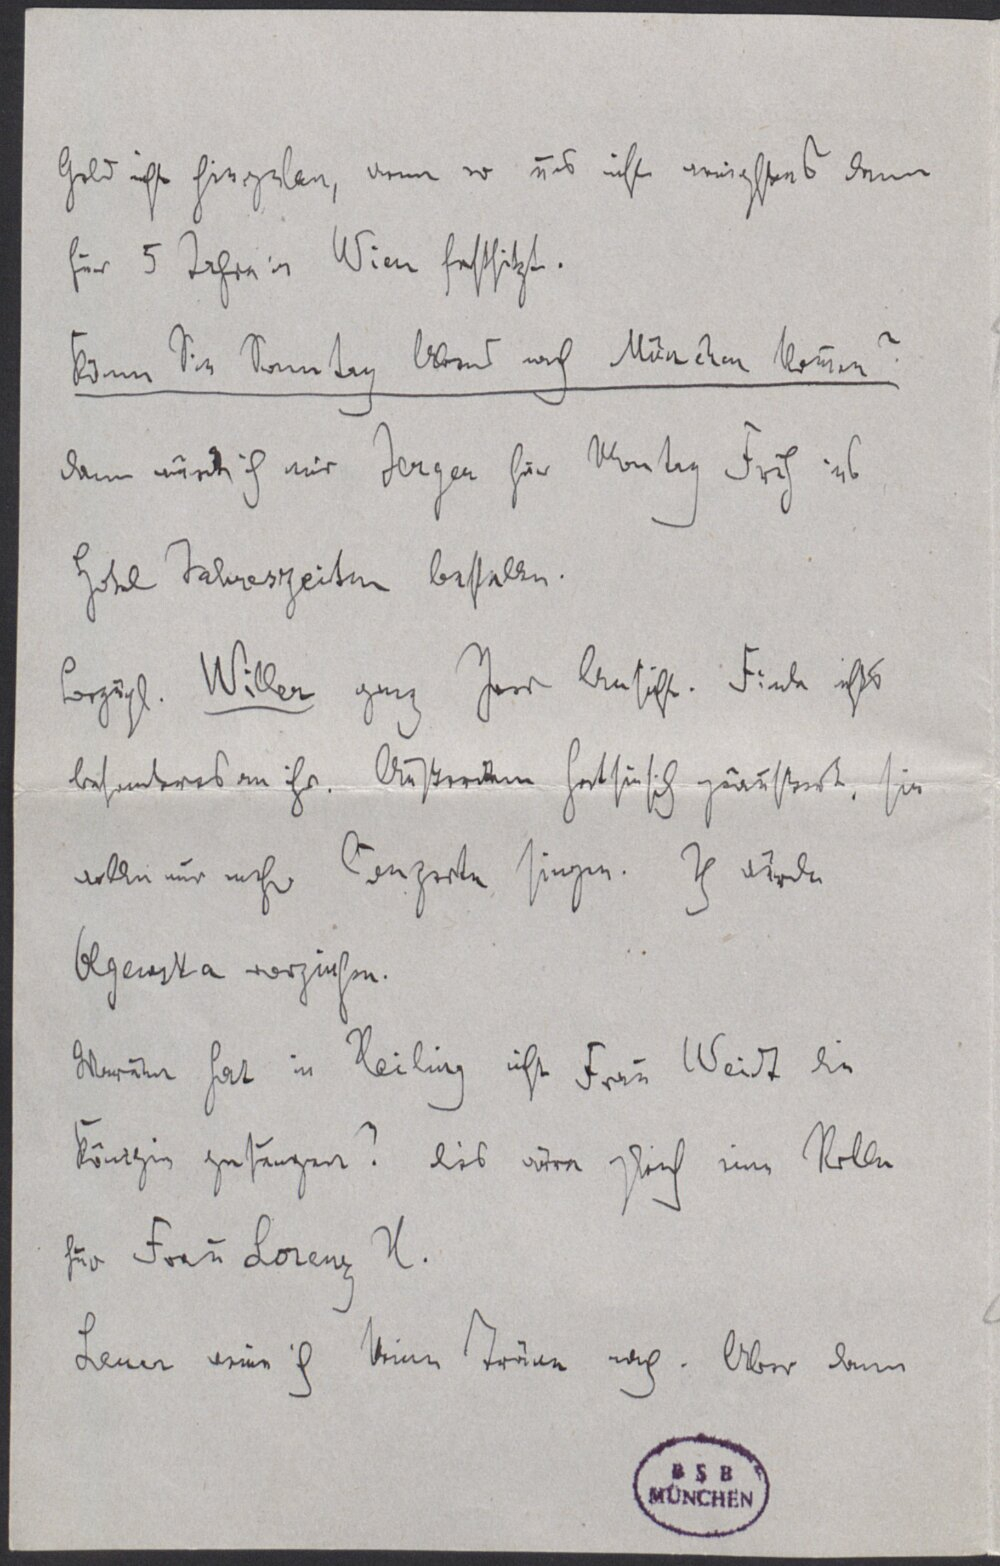 Geld nicht hinzulegen, wenn er uns nicht wenigstens dann
für 5 Jahre in Wien festsitzt.
Können Sie Sonntag Abend nach München kommen?
dann würde ich mir Jerger für Montag Früh ins
Hotel Jahreszeiten bestellen.
Bezügl. Willer ganz Ihrer Ansicht. Finde nichts
besonderes an ihr. Außerdem hat sie sich geäußert, sie
wolle nur mehr Conzerte singen. Ich würde
Olgewska vorziehen.
Warum hat in Heiling nicht Frau Weidt die
Königin gesungen? dies wäre gleich eine Rolle
für Frau Lorenz H.
Lauer weine ich keine Träne nach. Aber dann
BSB
MÜNCHEN